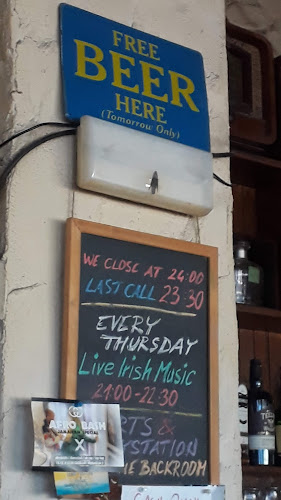 FREE
BEER
HERE
(Tomorrow Only)
WE CLOSE AT 24:00
LAST CALL 23:30
EVERY
THURSDAY
Live Irish Music
21:00-22:30
&
BACKROOM
AFRO BASH
X